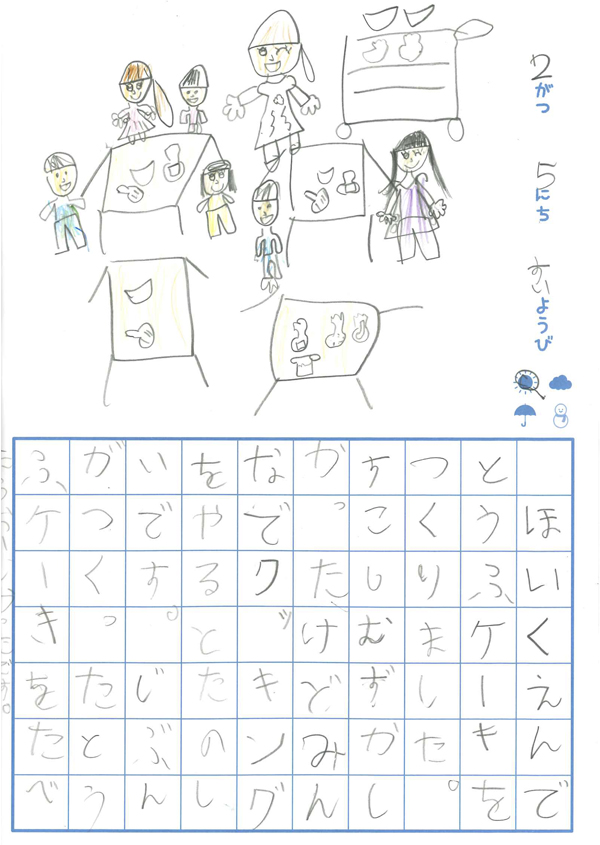 2がつ 5にち すいようび
ほいくえんで
とうふケーキを
つくりました。
すこしむずかし
かったけどみん
なでクッキング
をやるとたのし
いです。じぶん
がつくったとう
ふケーきをたべ